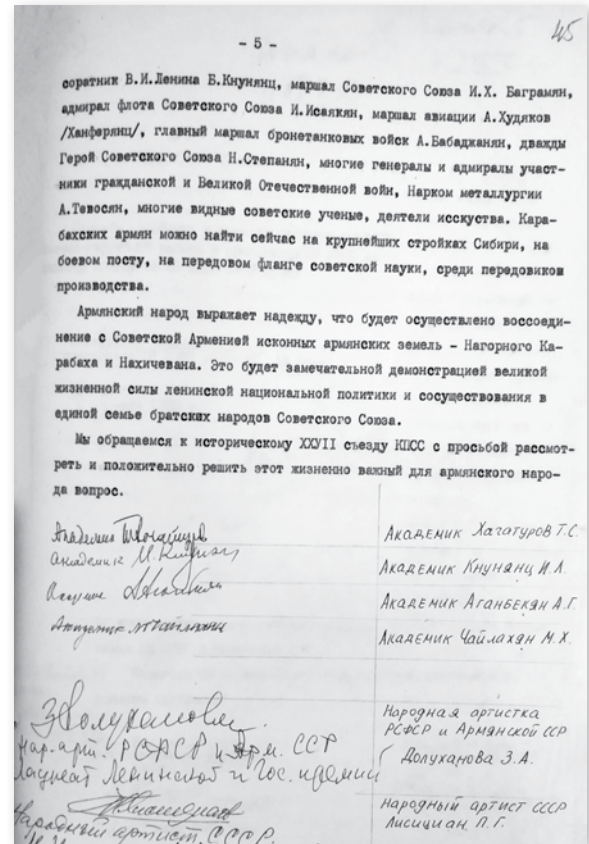 45
- 5 -
соратник В.И.Ленина Б.Кнунянц, маршал Советского Союза И.Х. Баграмян,
адмирал флота Советского Союза И.Исаякян, маршал авиации А.Худяков
/Ханферянц/, главный маршал бронетанковых войск А.Бабаджанян, дважды
Герой Советского Союза Н.Степанян, многие генералы и адмиралы участ-
ники гражданской и Великой Отечественной войн, Нарком металлургии
А.Тевосян, многие видные советские ученые, деятели исскуства. Кара-
бахских армян можно найти сейчас на крупнейших стройках Сибири, на
боевом посту, на передовом фланге советской науки, среди передовиков
производства.
Армянский народ выражает надежду, что будет осуществлено воссоеди-
нение с Советской Арменией исконных армянских земель - Нагорного Ка-
рабаха и Нахичевана. Это будет замечательной демонстрацией великой
жизненной силы ленинской национальной политики и сосуществования в
единой семье братских народов Советского Союза.
Мы обращаемся к историческому XXУII съезду КПСС с просьбой рассмот-
реть и положительно решить этот жизненно важный для армянского наро-
да вопрос.
Академик
Академик Хачатуров Т.С.
академик И. Кнунянц
Академик Кнунянц И.Л.
Академик Аганбекян А.Г.
Академик
Академик Чайлахян М.Х.
З Долуханова
Народная артистка
РСФСР и Армянской ССР
Нар. арт. РСФСР и Арм. ССР
Долуханова З.А.
Лауреат Ленинской и Гос. премии
Народный артист СССР
Лисициан П.Г.
Народный артист СССР,